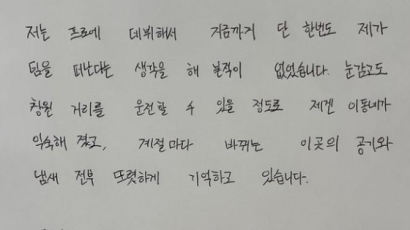 저는 프로에 데뷔해서 지금까지 단 한번도 제가
팀을 떠난다는 생각을 해 본적이 없었습니다. 눈감고도
창원 거리를 운전할 수 있을 정도로 제겐 이동네가
익숙해 졌고, 계절마다 바뀌는 이곳의 공기와
냄새 전부 또렷하게 기억하고 있습니다.